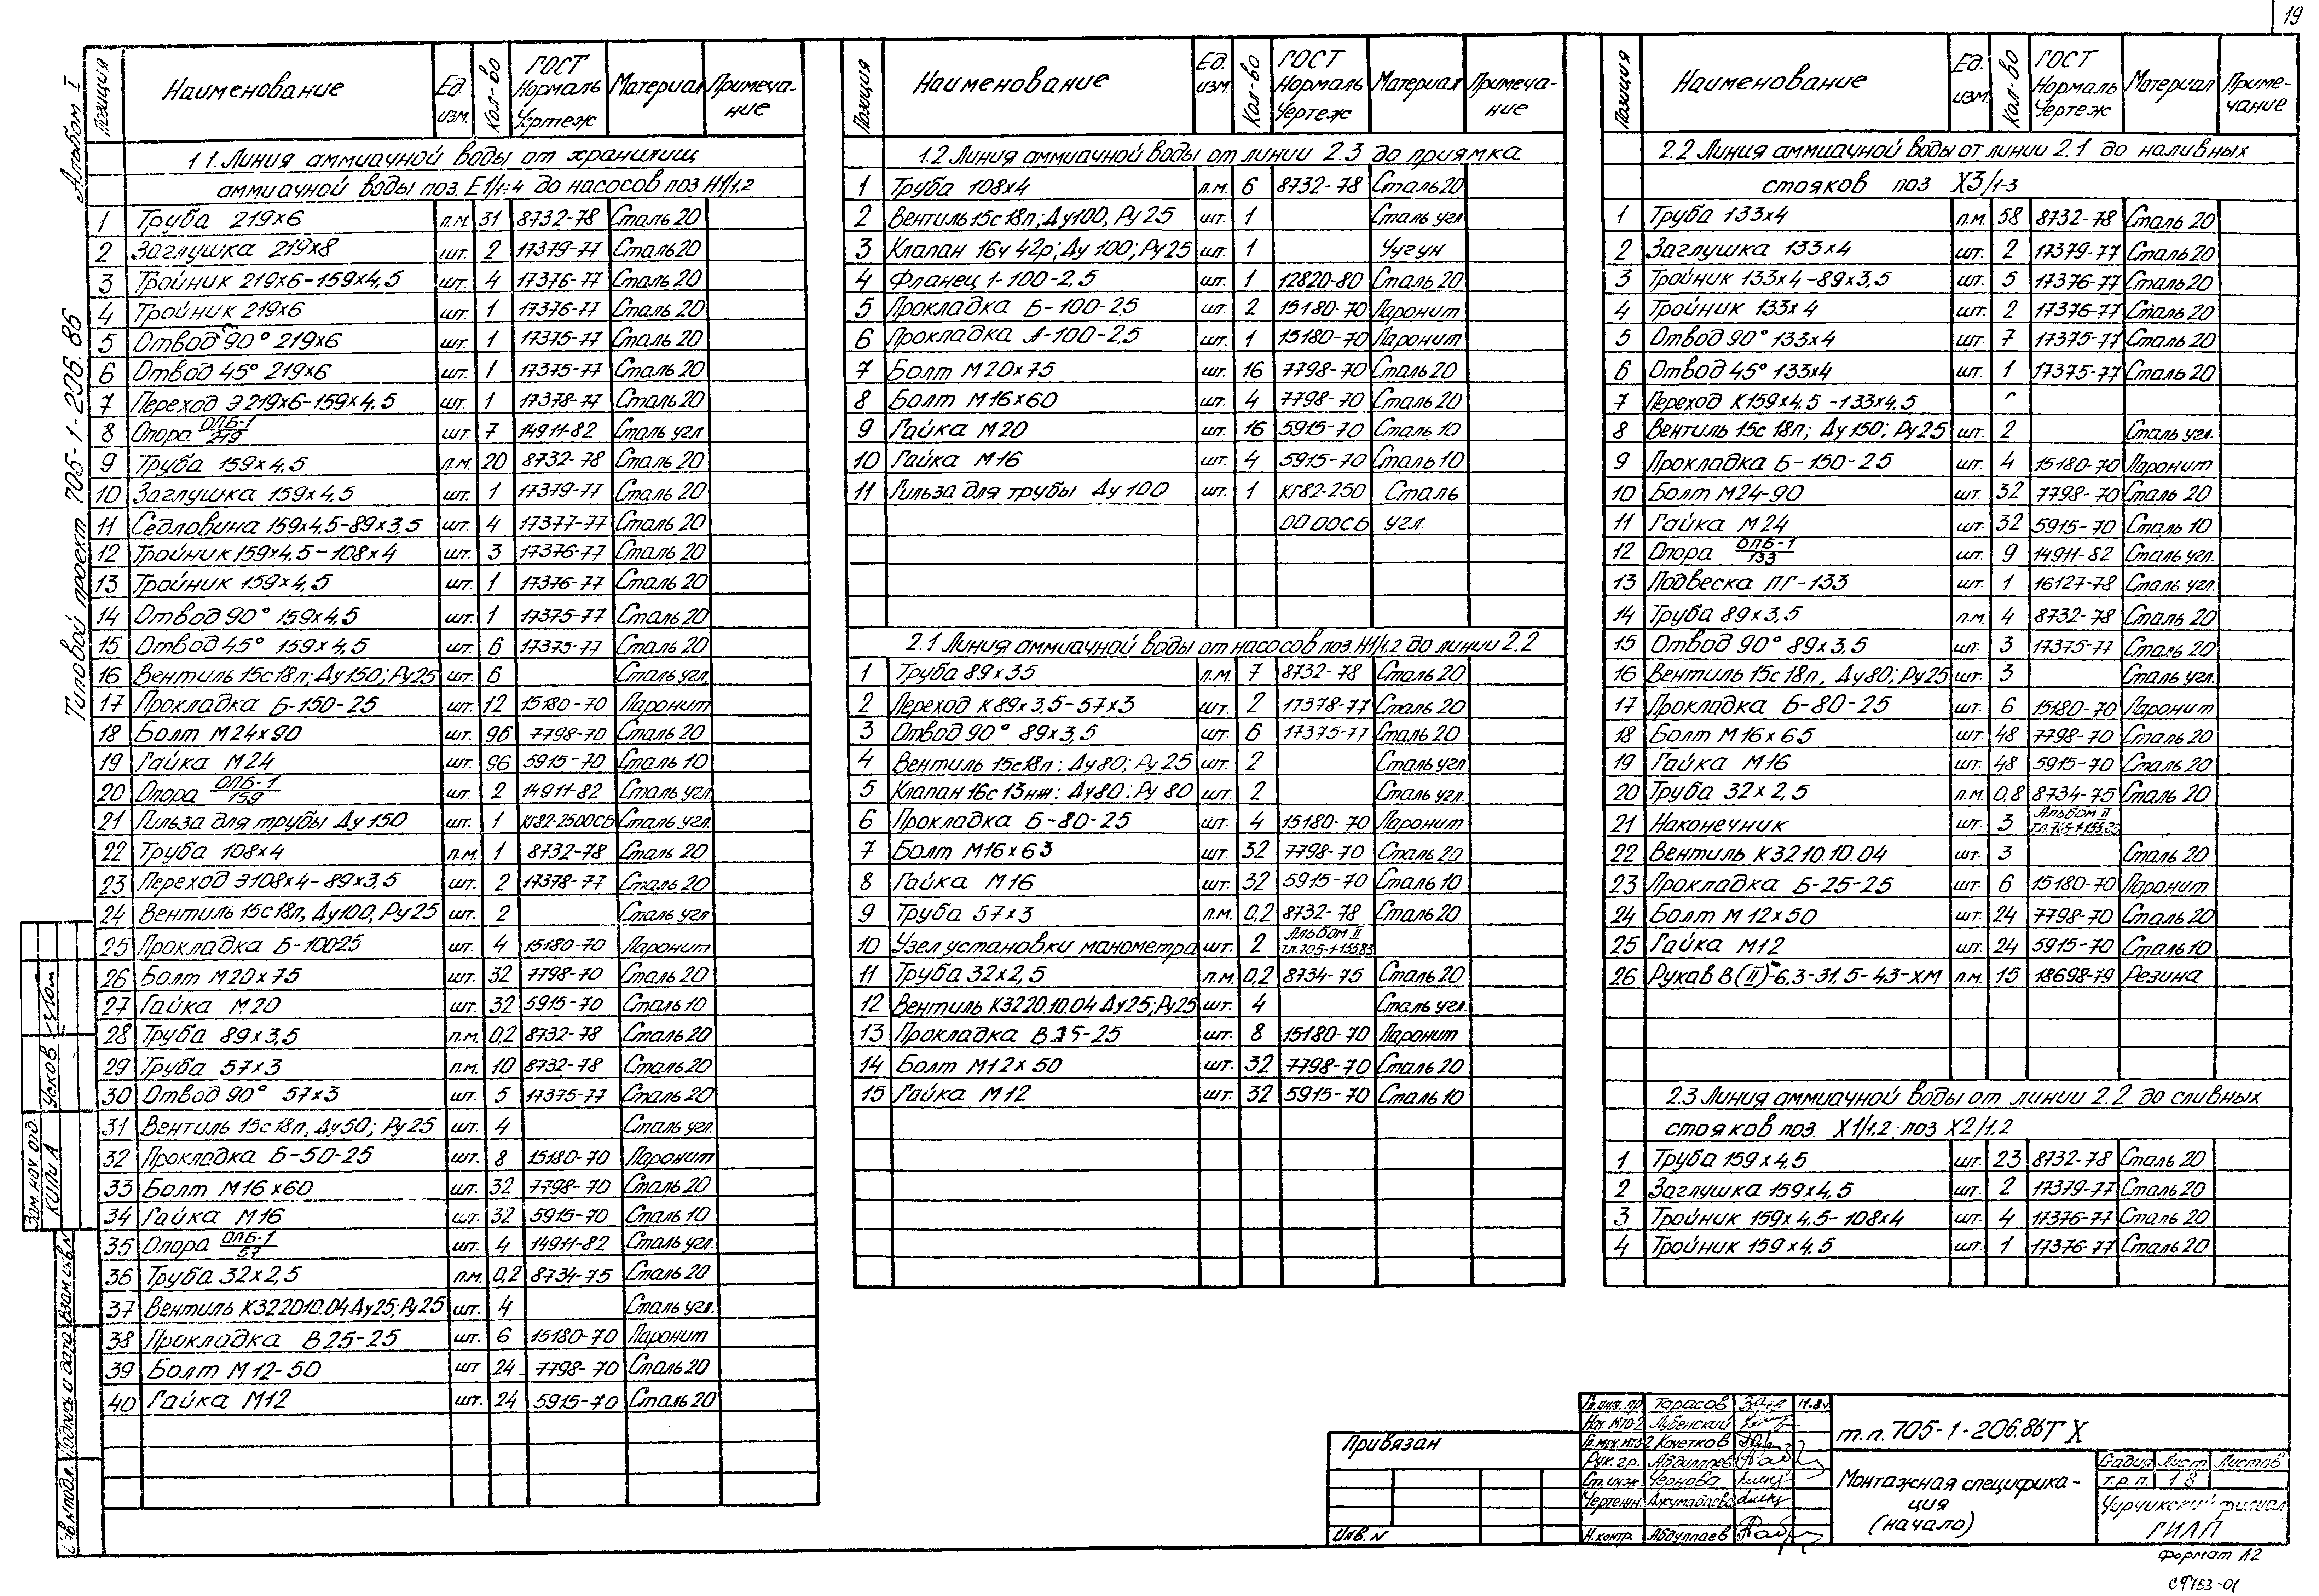 19
Альбом I
Типовой проект 705-1-206.86
Позиция Наименование Ед. изм. Кол-во ГОСТ Нормаль Чертеж Материал Примечание
1.1. Линия аммиачной воды от хранилищ
аммиачной воды поз. Е1/1÷4 до насосов поз Н1/1,2
1 Труба 219х6 п.м. 31 8732-78 Сталь 20
2 Заглушка 219х8 шт. 2 17379-77 Сталь 20
3 Тройник 219х6-159х4,5 шт. 4 17376-77 Сталь 20
4 Тройник 219х6 шт. 1 17376-77 Сталь 20
5 Отвод 90° 219х6 шт. 1 17375-77 Сталь 20
6 Отвод 45° 219х6 шт. 1 17375-77 Сталь 20
7 Переход Э 219х6-159х4,5 шт. 1 17378-77 Сталь 20
8 Опора ОПБ-1/219 шт. 7 14911-82 Сталь угл
9 Труба 159х4,5 п.м. 20 8732-78 Сталь 20
10 Заглушка 159х4,5 шт. 1 17379-77 Сталь 20
11 Седловина 159х4,5-89х3,5 шт. 4 17377-77 Сталь 20
12 Тройник 159х4,5-108х4 шт. 3 17376-77 Сталь 20
13 Тройник 159х4,5 шт. 1 17376-77 Сталь 20
14 Отвод 90° 159х4,5 шт. 1 17375-77 Сталь 20
15 Отвод 45° 159х4,5 шт. 6 17375-77 Сталь 20
16 Вентиль 15с18п; Ду150; Ру25 шт. 6 Сталь угл.
17 Прокладка Б-150-25 шт. 12 15180-70 Паронит
18 Болт М24х90 шт. 96 7798-70 Сталь 20
19 Гайка М24 шт. 96 5915-70 Сталь 10
20 Опора ОПБ-1/159 шт. 2 14911-82 Сталь угл.
21 Гильза для трубы Ду 150 шт. 1 КГ82-2500СБ Сталь угл.
22 Труба 108х4 п.м. 1 8732-78 Сталь 20
23 Переход Э108х4-89х3,5 шт. 2 17378-77 Сталь 20
24 Вентиль 15с18п, Ду100, Ру25 шт. 2 Сталь угл
25 Прокладка Б-10025 шт. 4 15180-70 Паронит
26 Болт М20х75 шт. 32 7798-70 Сталь 20
27 Гайка М20 шт. 32 5915-70 Сталь 10
28 Труба 89х3,5 п.м. 0,2 8732-78 Сталь 20
29 Труба 57х3 п.м. 10 8732-78 Сталь 20
30 Отвод 90° 57х3 шт. 5 17375-77 Сталь 20
31 Вентиль 15с18п, Ду50; Ру25 шт. 4 Сталь угл.
32 Прокладка Б-50-25 шт. 8 15180-70 Паронит
33 Болт М16х60 шт. 32 7798-70 Сталь 20
34 Гайка М16 шт. 32 5915-70 Сталь 10
35 Опора ОПБ-1/57 шт. 4 14911-82 Сталь угл.
36 Труба 32х2,5 п.м. 0,2 8734-75 Сталь 20
37 Вентиль К3220.10.04 Ду25; Ру25 шт. 4 Сталь угл.
38 Прокладка В25-25 шт. 6 15180-70 Паронит
39 Болт М12-50 шт 24 7798-70 Сталь 20
40 Гайка М12 шт. 24 5915-70 Сталь 20
Позиция Наименование Ед. изм. Кол-во ГОСТ Нормаль Чертеж Материал Примечание
1.2 Линия аммиачной воды от линии 2.3 до приямка
1 Труба 108х4 п.м. 6 8732-78 Сталь 20
2 Вентиль 15с18п; Ду100, Ру25 шт. 1 Сталь угл
3 Клапан 16ч 42р; Ду 100; Ру25 шт. 1 Чугун
4 Фланец 1-100-2,5 шт. 1 12820-80 Сталь 20
5 Прокладка Б-100-25 шт. 2 15180-70 Паронит
6 Прокладка А-100-2,5 шт. 1 15180-70 Паронит
7 Болт М20х75 шт. 16 7798-70 Сталь 20
8 Болт М16х60 шт. 4 7798-70 Сталь 20
9 Гайка М20 шт. 16 5915-70 Сталь 10
10 Гайка М16 шт. 4 5915-70 Сталь 10
11 Гильза для трубы Ду 100 шт. 1 КГ82-250 Сталь
00.00СБ угл.
2.1 Линия аммиачной воды от насосов поз Н1/1,2 до линии 2.2
1 Труба 89х35 п.м. 7 8732-78 Сталь 20
2 Переход К 89х3,5-57х3 шт. 2 17378-77 Сталь 20
3 Отвод 90° 89х3,5 шт. 6 17375-77 Сталь 20
4 Вентиль 15с18п; Ду80; Ру 25 шт. 2 Сталь угл
5 Клапан 16с13нж; Ду80; Ру 80 шт. 2 Сталь угл.
6 Прокладка Б-80-25 шт. 4 15180-70 Паронит
7 Болт М16х63 шт. 32 7798-70 Сталь 20
8 Гайка М16 шт. 32 5915-70 Сталь 10
9 Труба 57х3 п.м. 0,2 8732-78 Сталь 20
10 Узел установки манометра шт. 2 Альбом II т.п.705-1-155.83
11 Труба 32х2,5 п.м. 0,2 8734-75 Сталь 20
12 Вентиль К3220.10.04 Ду25; Ру25 шт. 4 Сталь угл.
13 Прокладка В25-25 шт. 8 15180-70 Паронит
14 Болт М12х50 шт. 32 7798-70 Сталь 20
15 Гайка М12 шт. 32 5915-70 Сталь 10
Позиция Наименование Ед. изм. Кол-во ГОСТ Нормаль Чертеж Материал Примечание
2.2 Линия аммиачной воды от линии 2.1 до наливных
стояков поз Х3/1-3
1 Труба 133х4 п.м. 58 8732-78 Сталь 20
2 Заглушка 133х4 шт. 2 17379-77 Сталь 20
3 Тройник 133х4-89х3,5 шт. 5 17376-77 Сталь 20
4 Тройник 133х4 шт. 2 17376-77 Сталь 20
5 Отвод 90° 133х4 шт 7 17375-77 Сталь 20
6 Отвод 45° 133х4 шт. 1 17375-77 Сталь 20
7 Переход К159х4,5-133х4,5
8 Вентиль 15с18п; Ду150; Ру25 шт. 2 Сталь угл.
9 Прокладка Б-150-25 шт. 4 15180-70 Паронит
10 Болт М24-90 шт. 32 7798-70 Сталь 20
11 Гайка М24 шт. 32 5915-70 Сталь 10
12 Опора ОПБ-1/133 шт. 9 14911-82 Сталь угл.
13 Подвеска ПГ-133 шт. 1 16127-78 Сталь угл.
14 Труба 89х3,5 п.м. 4 8732-78 Сталь 20
15 Отвод 90° 89х3,5 шт. 3 17375-77 Сталь 20
16 Вентиль 15с18п, Ду80; Ру25 шт. 3 Сталь угл.
17 Прокладка Б-80-25 шт. 6 15180-70 Паронит
18 Болт М16х65 шт. 48 7798-70 Сталь 20
19 Гайка М16 шт. 48 5915-70 Сталь 20
20 Труба 32х2,5 п.м. 0,8 8734-75 Сталь 20
21 Наконечник шт. 3 Альбом II т.п.705-1-155.83
22 Вентиль К3210.10.04 шт. 3 Сталь 20
23 Прокладка Б-25-25 шт. 6 15180-70 Паронит
24 Болт М12х50 шт. 24 7798-70 Сталь 20
25 Гайка М12 шт. 24 5915-70 Сталь 10
26 Рукав В(II)-6,3-31,5-43-ХМ п.м. 15 18698-79 Резина
2.3 Линия аммиачной воды от линии 2.2 до сливных
стояков поз. Х1/1,2; поз Х2/1,2
1 Труба 159х4,5 шт. 23 8732-78 Сталь 20
2 Заглушка 159х4,5 шт. 2 17379-77 Сталь 20
3 Тройник 159х4,5-108х4 шт. 4 17376-77 Сталь 20
4 Тройник 159х4,5 шт. 1 17376-77 Сталь 20
Зам.нач.отд. Усков
КИПиА
Взам.инв.№
Подпись и дата
Инв.№подл.
Привязан
Инв.№
Гл.инж.пр Тарасов 11.84
Нач.МТО-2 Лубенский
Гл.мех.МТО-2 Кочетков
Рук.гр. Абдуллаев
Ст.инж. Чернова
Чертежн. Джумабаева
Н.контр. Абдуллаев
т.п.705-1-206.86ТХ
Монтажная специфика-
ция
(начало)
Стадия Лист Листов
т.р.п. 18
Чирчикский филиал
ГИАП
Формат А2
СФ753-01